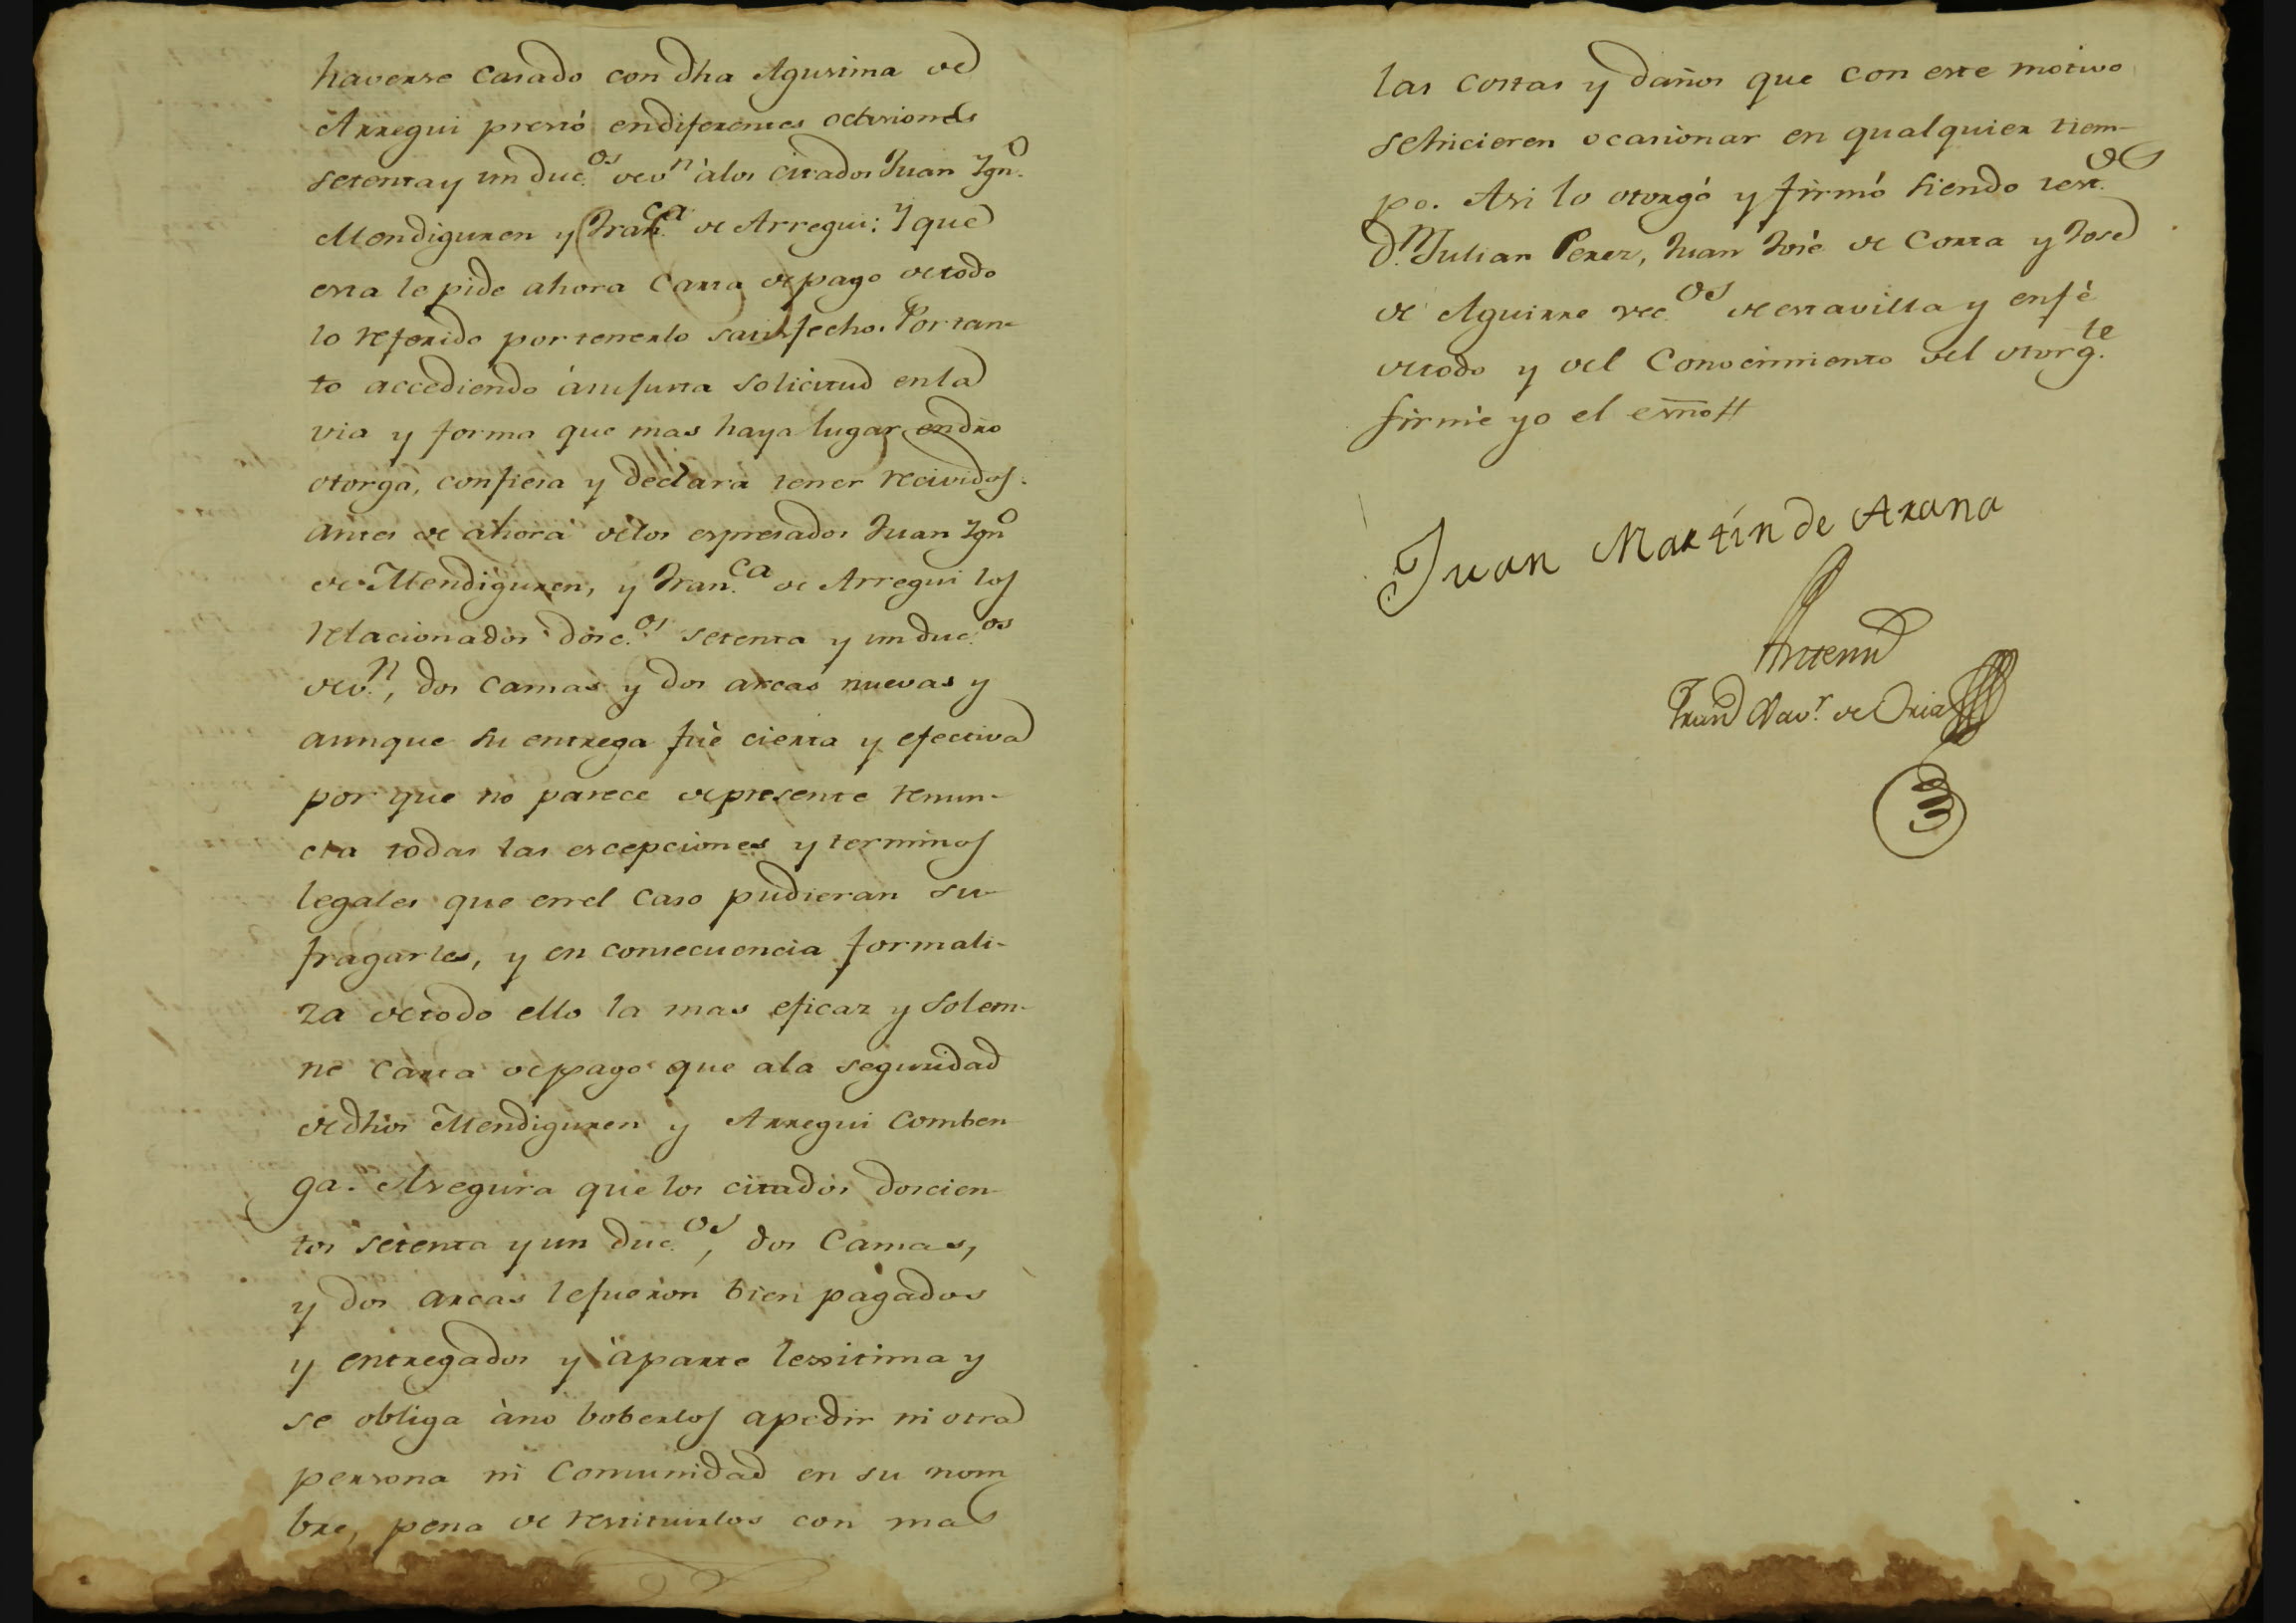 haverse casado con dha Agustina de
Arregui prestó endiferentes octesiones
setenta y un duc.os dev.n álos citados Juan Ygn.o
Mendiguren y Fran.ca de Arregui: Y que
esta le pide ahora Carta depago detodo
lo referido portenerlo satisfecho. Portan-
to accediendo ásujusta solicitud enla
via y forma que mas haya lugar endro
otorga, confiesa y declara tener recividos
antes de ahora delos espresados Juan Ygn.o
de Mendiguren, y Fran.ca de Arregui los
relacionados dosc.os setenta y un duc.os
dev.n, dos camas y dos arcas nuevas y
aunque su entrega fué cierta y efectiva
por que no parece depresente renun-
cia todas las escepciones y terminos
legales que enel caso pudieran su-
fragarles, y en consecuencia formali-
za detodo ello la mas eficaz y solem-
ne carta depago que ala seguridad
dedhos Mendiguren y Arregui comben
ga. Asegura que los citados doscien
tos setenta y un duc.os, dos Camas,
y dos arcas lefueron bien pagados
y entregados y áparte lexitima y
se obliga áno boberlos apedir ni otra
persona ni Comunidad en su nom
bre, pena de restituirlos con mas
las costas y daños que con este motivo
sehicieren ocasionar en qualquier tiem-
po. Asi lo otorgó y firmó siendo test.os
D.n Julian Perez, Juan José de Corta y José
de Aguirre vec.os deestavilla y enfé
detodo y del Conocimiento del otorg.te
firmé yo el esno//
Juan Martín de Arana
Antemi
Fran.co Xav.r de Oria